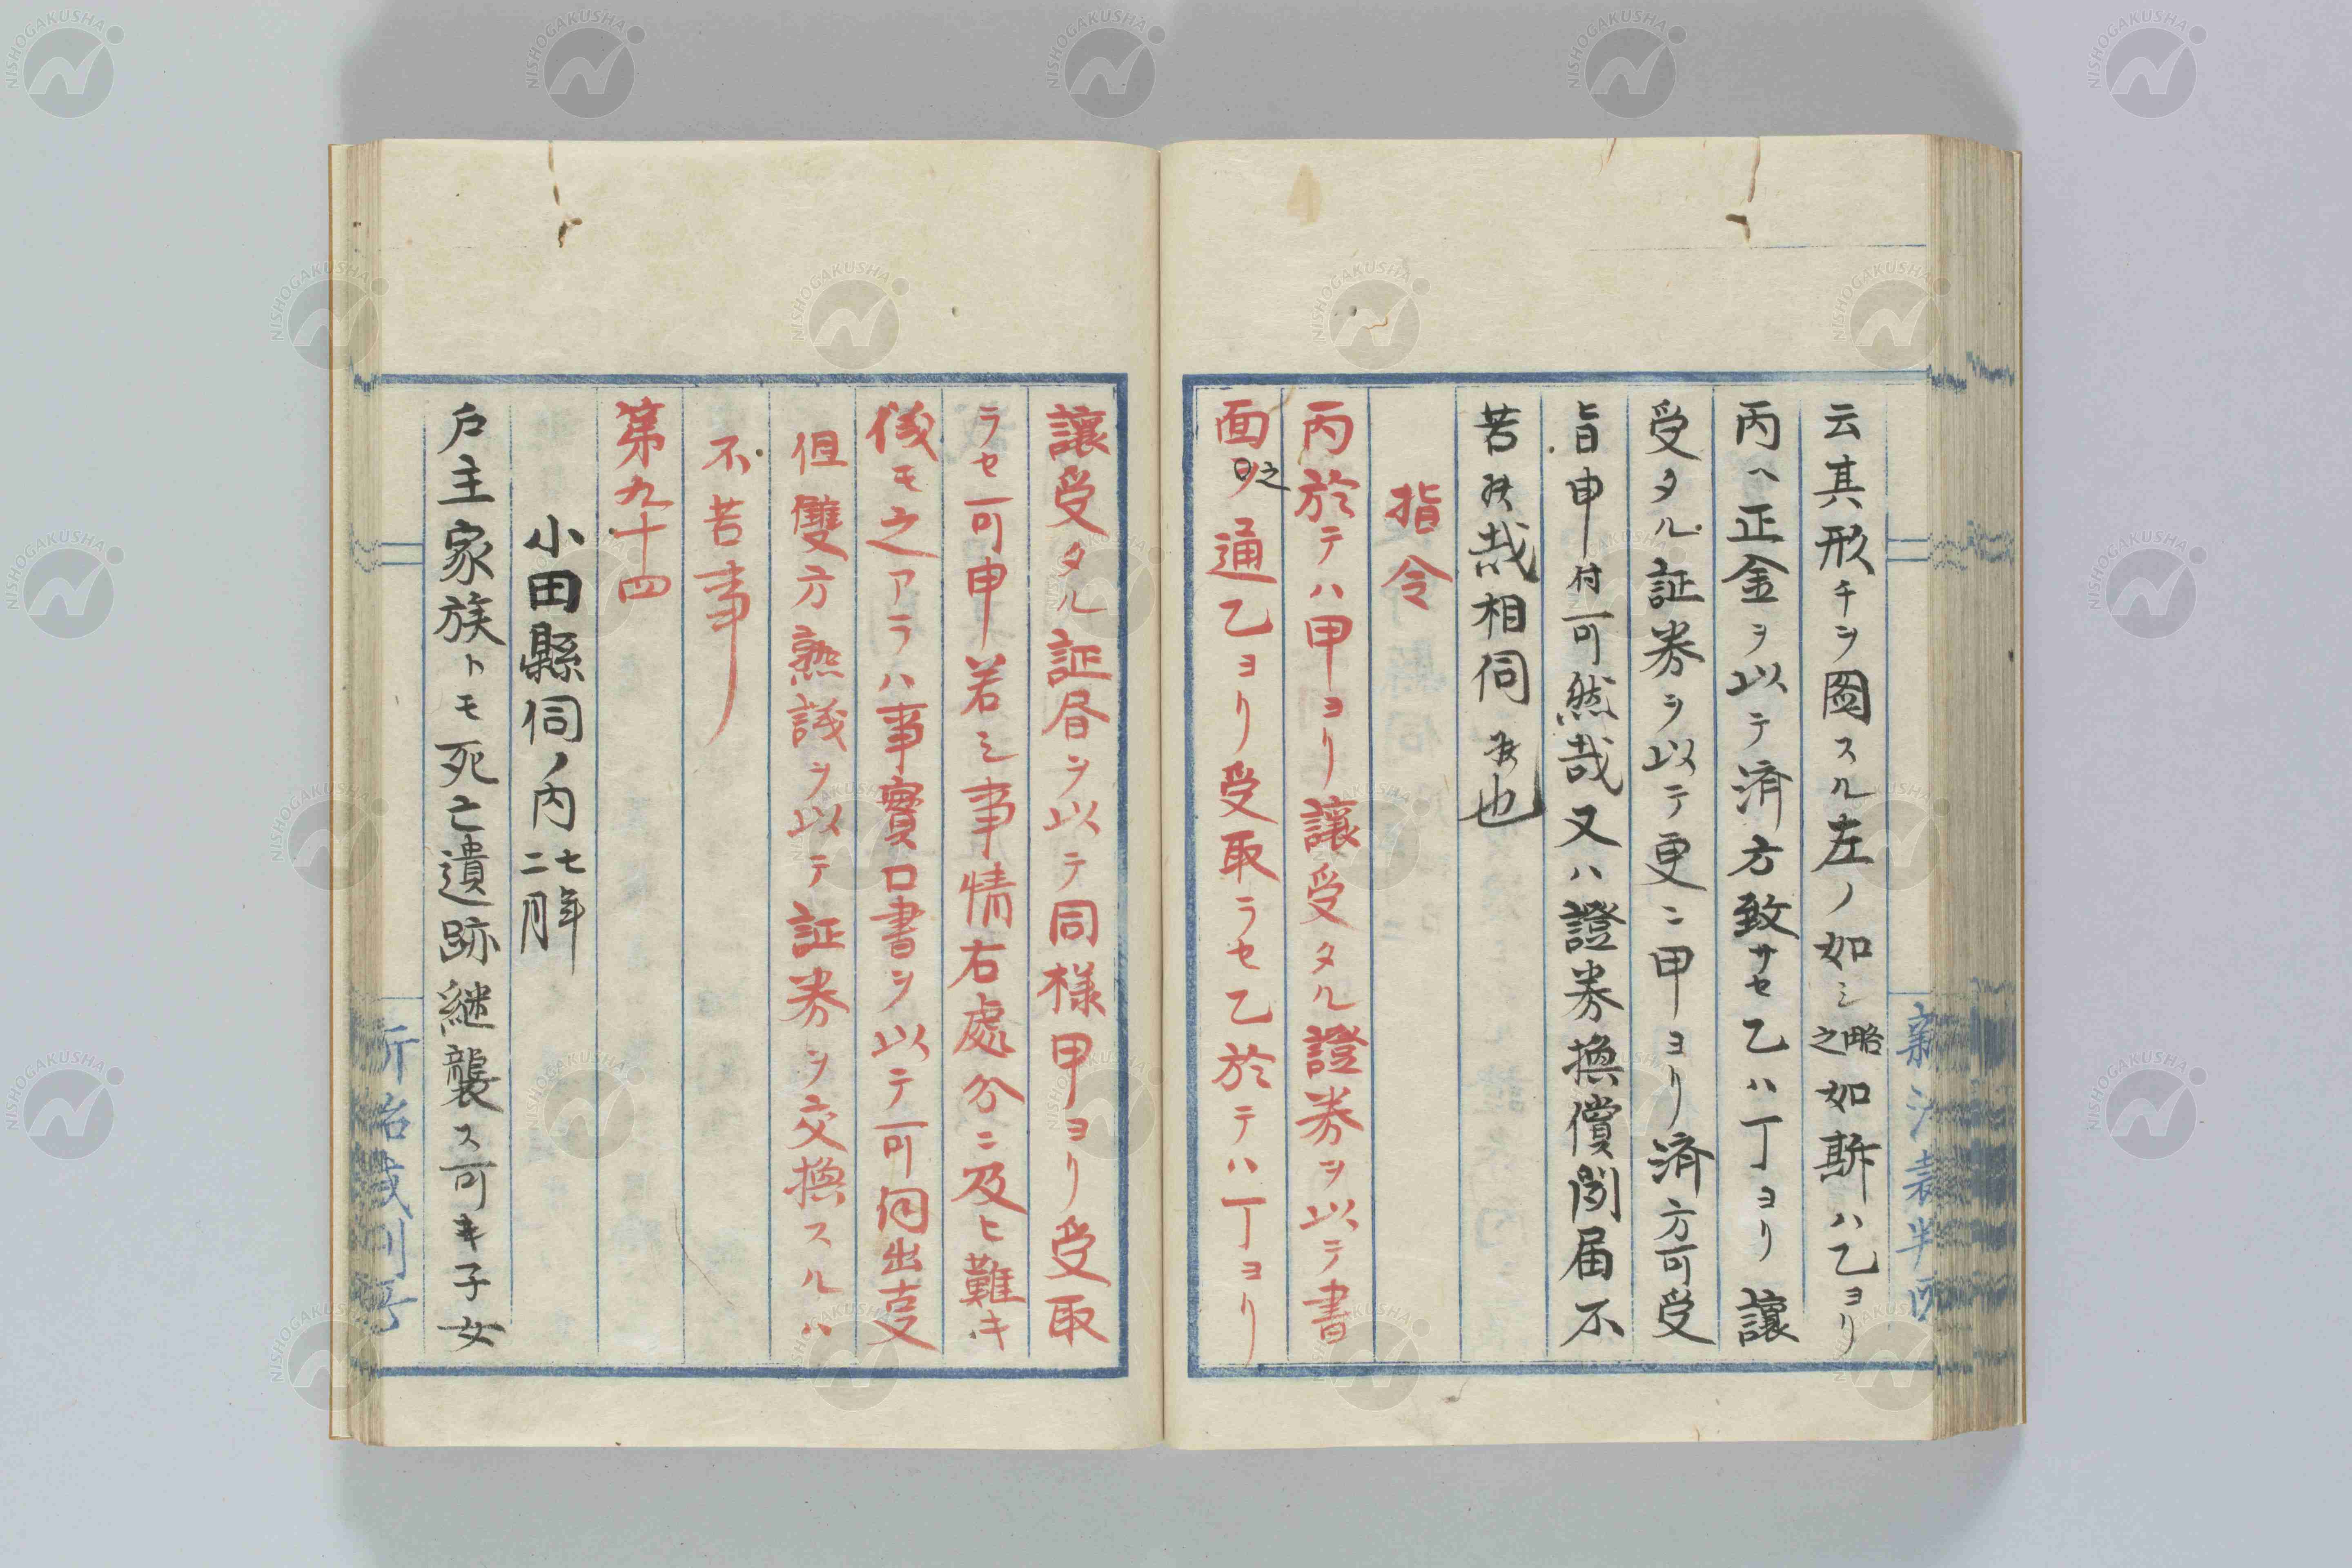 云其形チヲ圖スル左ノ如シ略之如斯ハ乙ヨリ
丙ヘ正金ヲ以テ済方致サセ乙ハ丁ヨリ讓
受タル証券ヲ以テ更ニ甲ヨリ済方可受
旨申付可然哉又ハ證券換償聞届不
苦候哉相伺候也
指令
丙於テハ甲ヨリ讓受タル證券ヲ以テ書
面之通乙ヨリ受取ラセ乙於テハ丁ヨリ
讓受タル証書ヲ以テ同様甲ヨリ受取
ラセ可申若シ事情右處分ニ及ヒ難キ
儀モ之アラハ事實口書ヲ以テ可伺出支
但雙方熟議ヲ以テ証券ヲ交換スルハ
不苦事
第九十四
小田縣伺ノ内 七年二月
戸主家族トモ死亡遺跡継襲ス可キ子女
新治裁判所
NISHOGAKUSHA